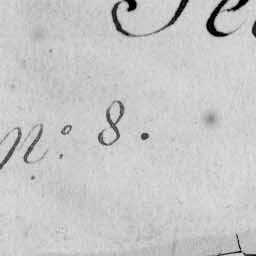 N.º 8.